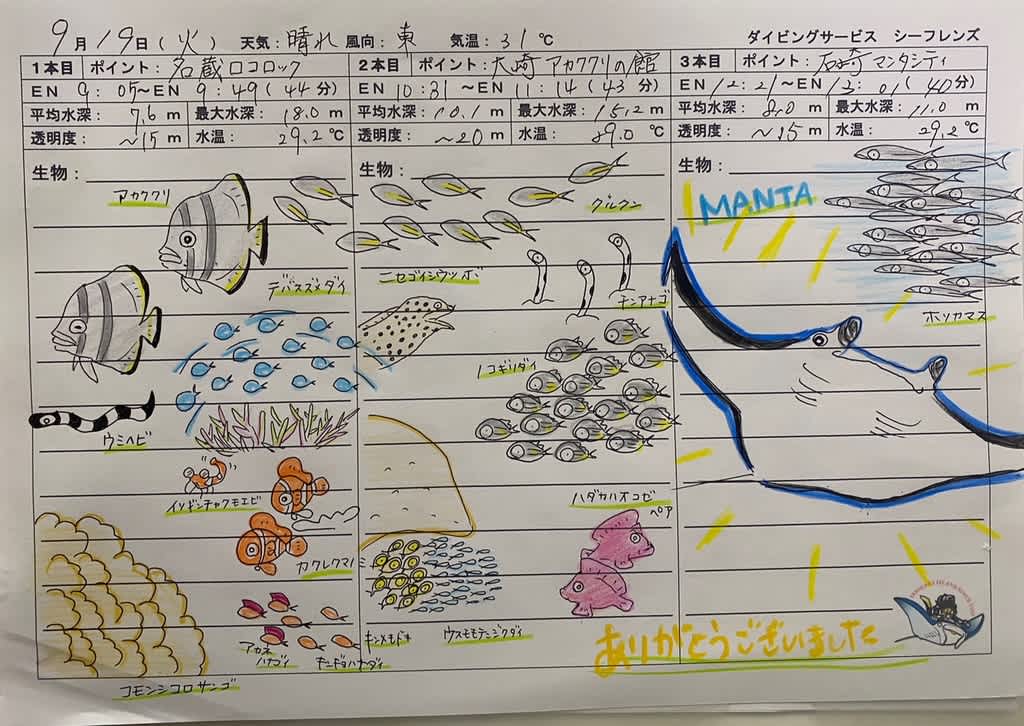 9月19日(火) 天気:晴れ 風向:東 気温:31℃ ダイビングサービス シーフレンズ
1本目 ポイント:名蔵ロコロック
EN 9:05～EN 9:49(44分)
平均水深: 7.6 m 最大水深: 18.0 m
透明度: ~15 m 水温: 29.2 ℃
生物:
アカククリ
デバスズメダイ
ウミヘビ
イソギンチャクモエビ
カクレクマノミ
アカネハナゴイ
キンギョハナダイ
コモンシコロサンゴ
2本目 ポイント:大崎 アカククリの館
EN 10:31 ～EN 11:14(43分)
平均水深: 10.1 m 最大水深: 15.2 m
透明度: ~20 m 水温: 29.0 ℃
生物:
グルクン
ニセゴイシウツボ
チンアナゴ
ノコギリダイ
ハダカハオコゼ
ペア
キンメモドキ
ウスモモテンジクダイ
3本目 ポイント:石崎 マンタシティ
EN 12:21～EN 13:01(40分)
平均水深: 8.0 m 最大水深: 11.0 m
透明度: ~15 m 水温: 29.2 ℃
生物:
MANTA
ホソカマス
ありがとうございました